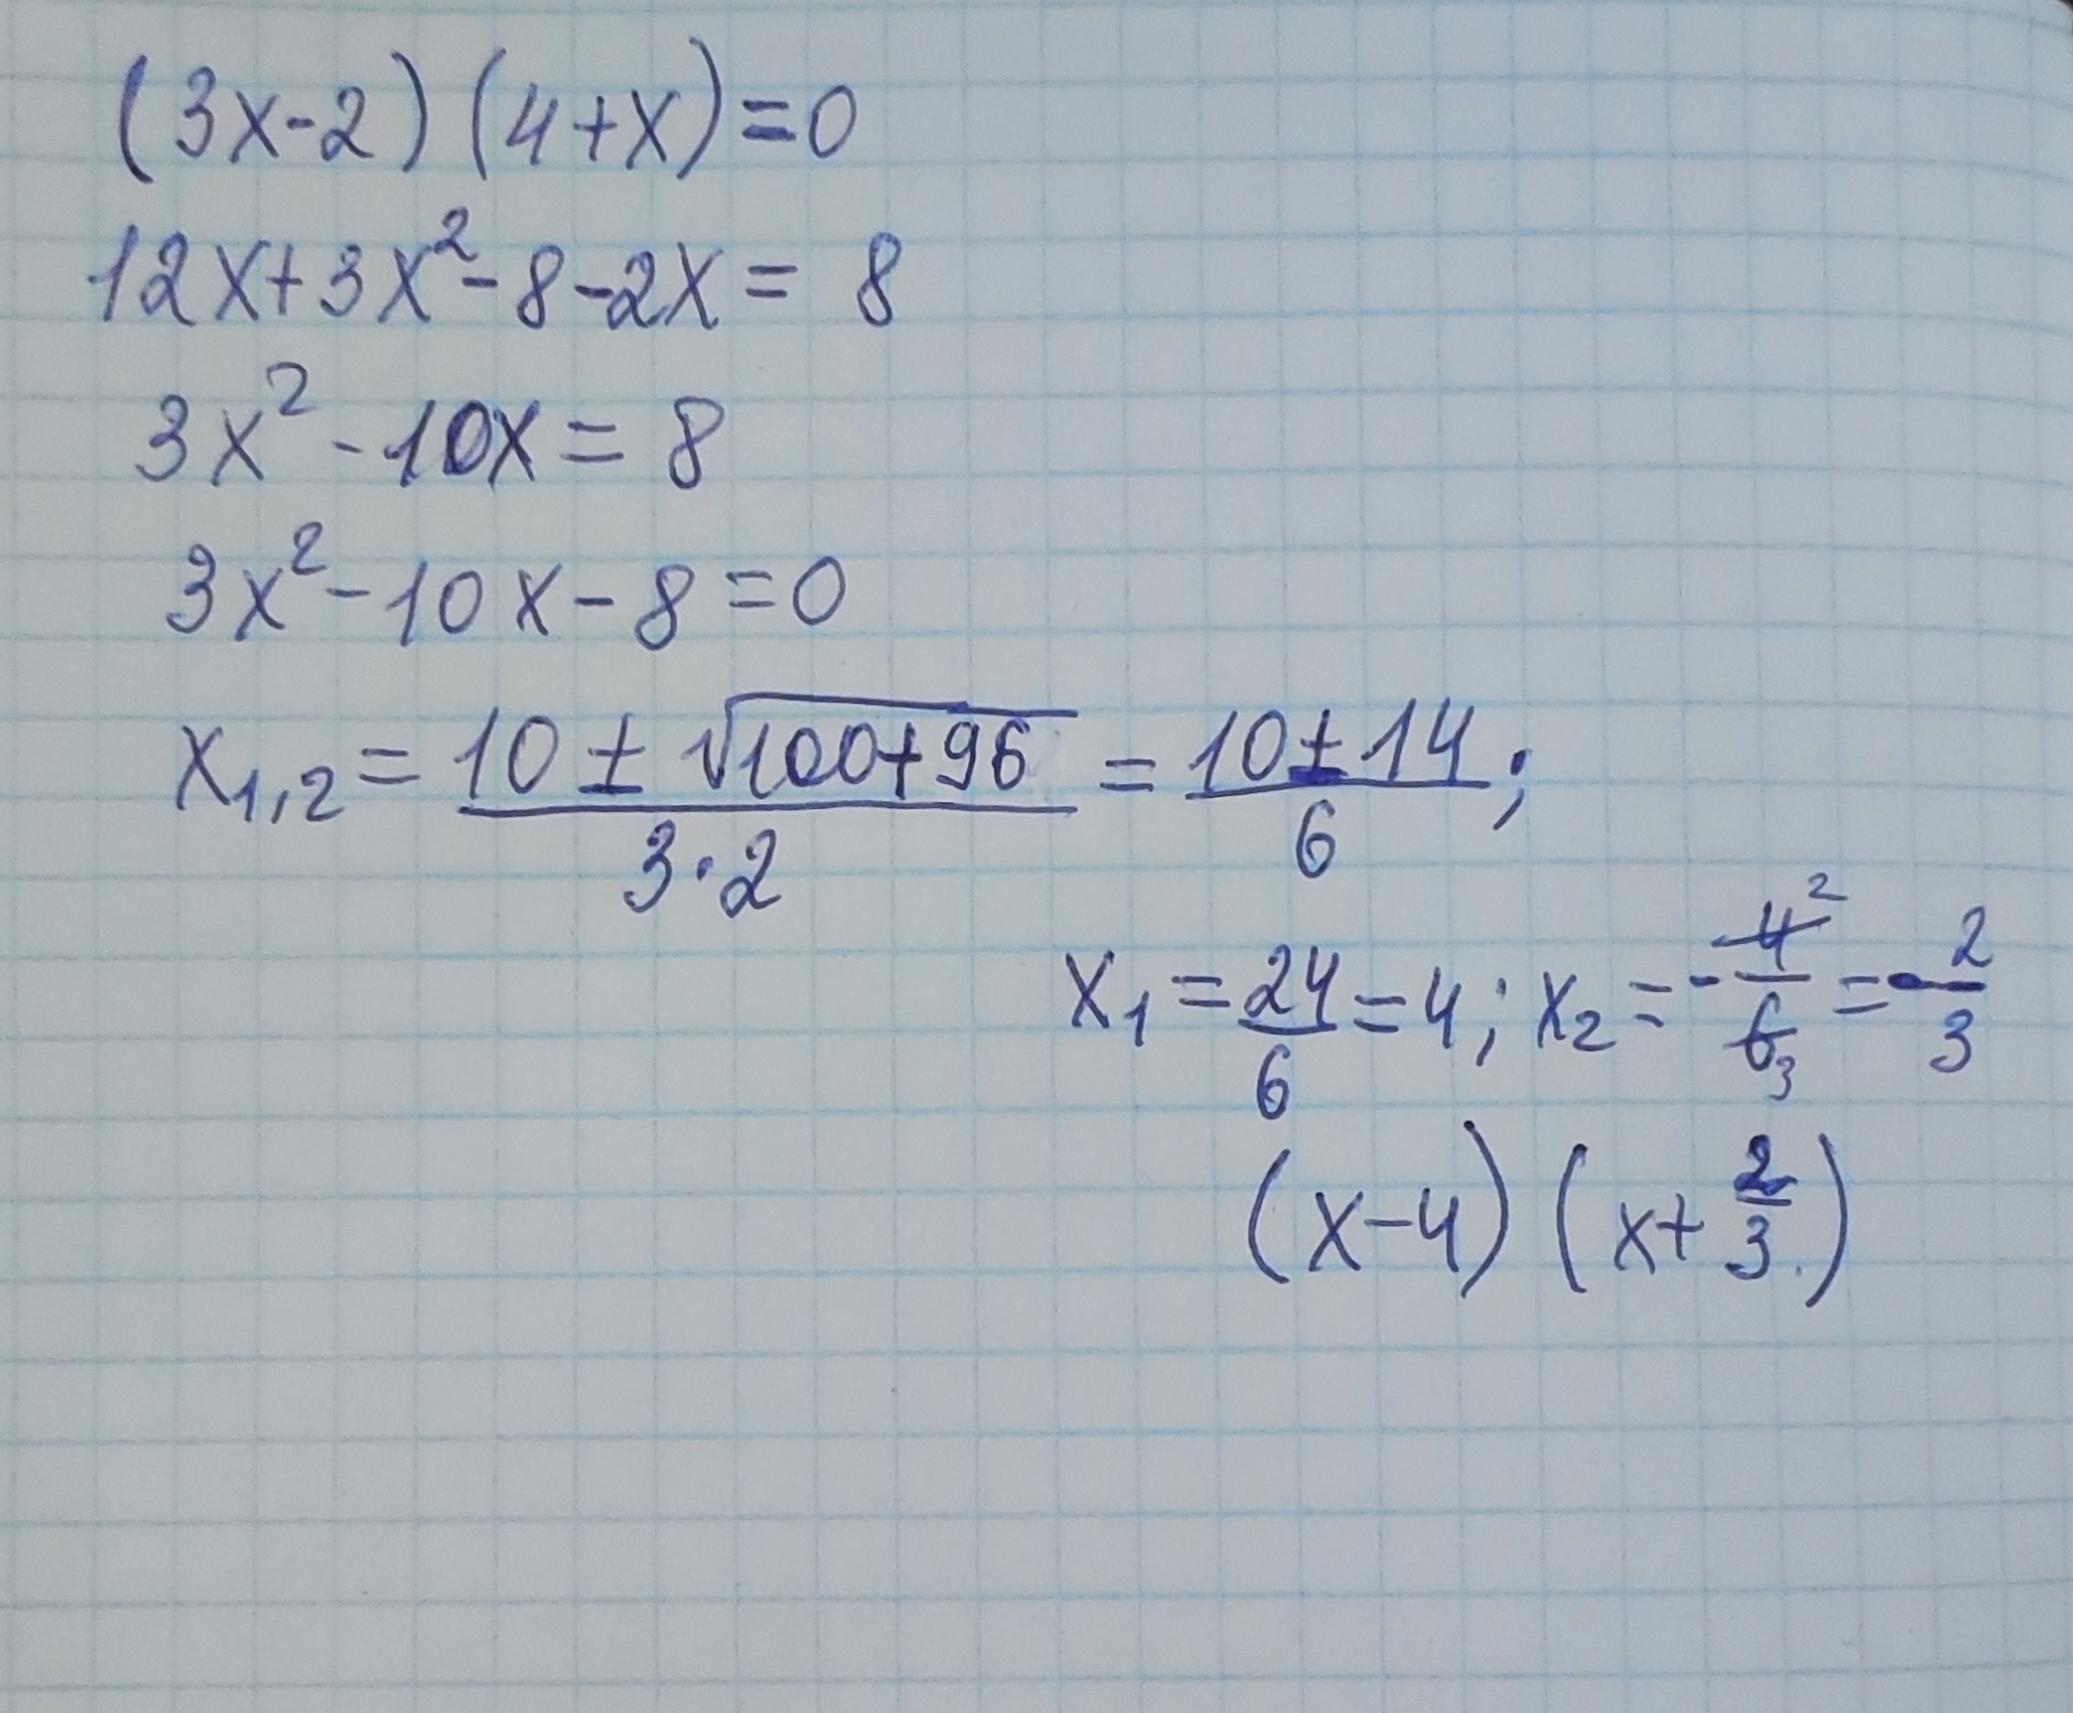 (3x-2)(4+x)=0
12x+3x²-8-2x= 8
3x²-10x=8
3x²-10x-8=0
x₁,₂ = (10 ± √(100+96))/(3·2) = (10±14)/6;
x₁ = 24/6 = 4; x₂ = -4²/6₃ = -2/3
(x-4)(x+2/3)